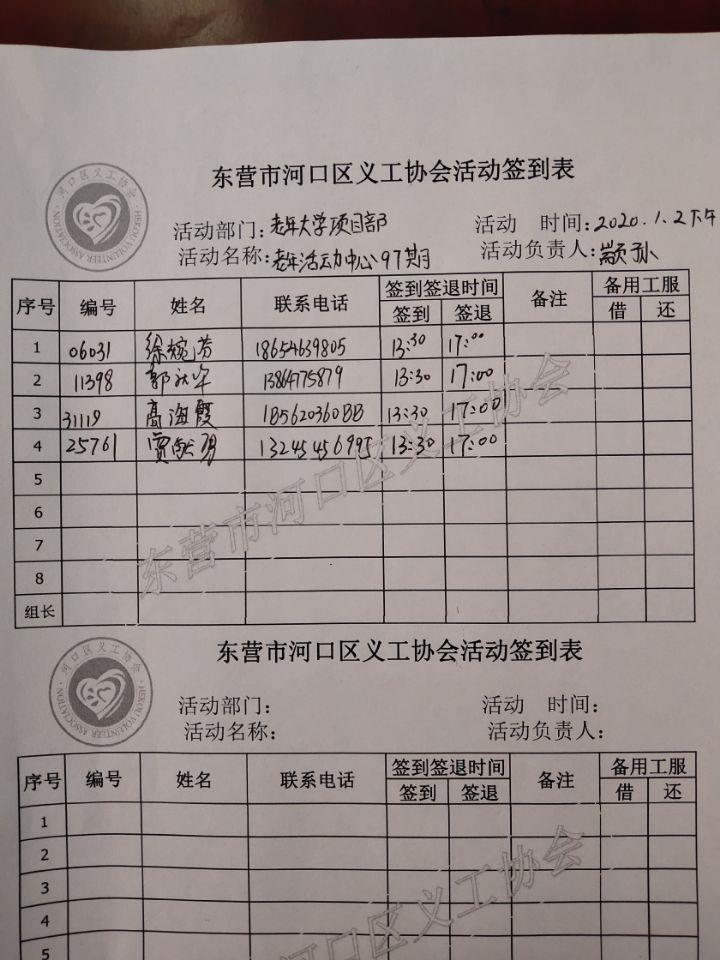 河口区义工协会
HEKOU VOLUNTEER ASSOCIATION
东营市河口区义工协会活动签到表
活动部门：老年大学项目部 活动 时间：2020.1.2下午
活动名称：老年活动中心97期 活动负责人：
序号 编号 姓名 联系电话 签到签退时间 备注 备用工服
签到 签退 借 还
1 06031 徐婉芳 18654639805 13:30 17:00
2 11398 郭 13864775879 13:30 17:00
3 31119 高海霞 185620360BB 13:30 17:00
4 25761 贾 勇 13245456995 13:30 17:00
5
6
7
8
组长
东营市河口区义工协会
河口区义工协会
HEKOU VOLUNTEER ASSOCIATION
东营市河口区义工协会活动签到表
活动部门： 活动 时间：
活动名称： 活动负责人：
序号 编号 姓名 联系电话 签到签退时间 备注 备用工服
签到 签退 借 还
1
2
3
4
5
河口区义工协会